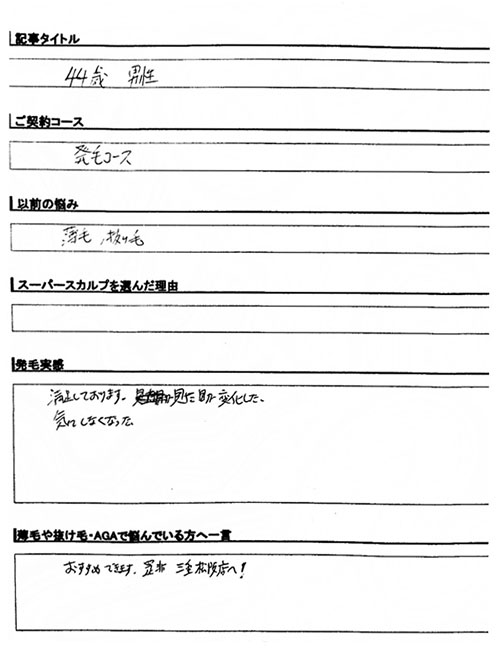 記事タイトル
44歳 男性
ご契約コース
発毛コース
以前の悩み
薄毛、抜け毛
スーパースカルプを選んだ理由
発毛実感
満足しております。見た目が変化した、
気にしなくなった。
薄毛や抜け毛・AGAで悩んでいる方へ一言
おすすめできます。是非 三重松阪店へ!